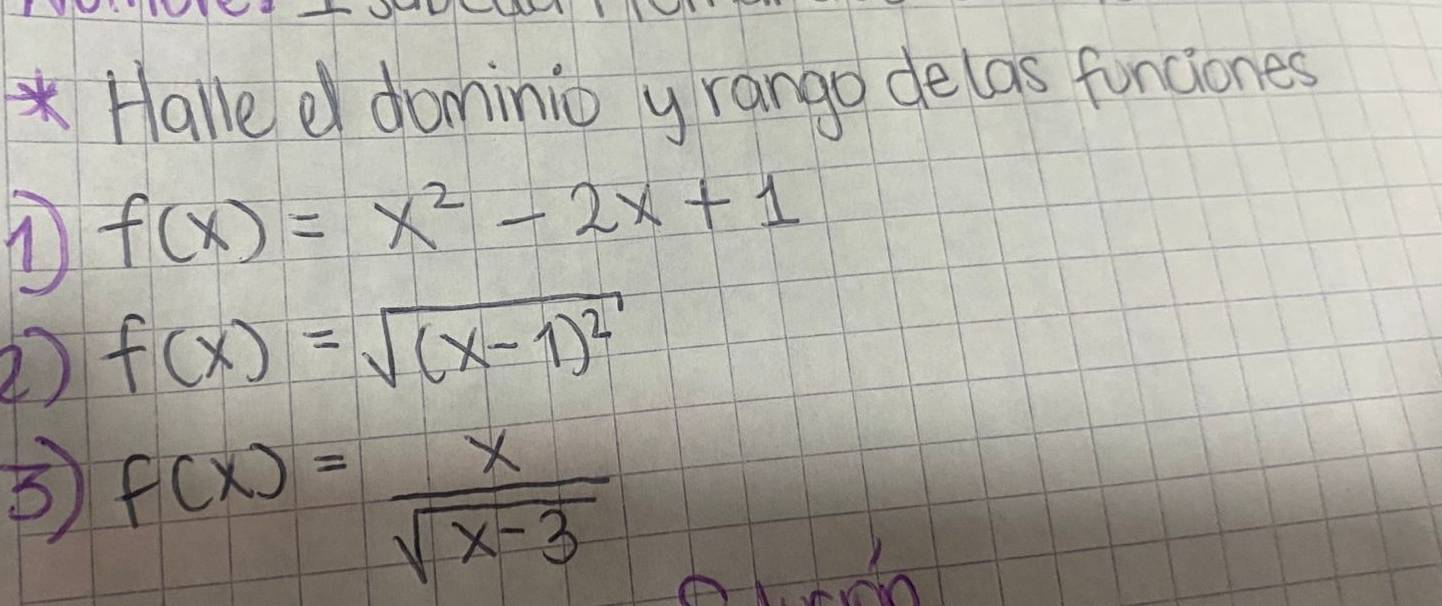 * Halle el dominio y rango de las funciones
1) f(x) = x² - 2x + 1
2) f(x) = √(x-1)²
3) f(x) = x / √x-3